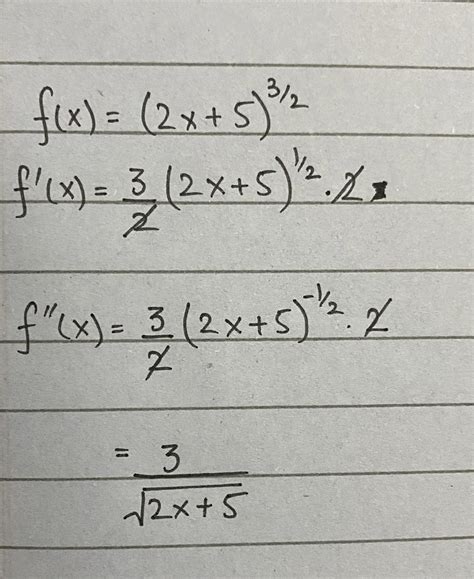 f(x) = (2x+5)^{3/2}
f'(x) = \frac{3}{2} (2x+5)^{1/2} · 2
f''(x) = \frac{3}{2} (2x+5)^{-1/2} · 2
= \frac{3}{\sqrt{2x+5}}